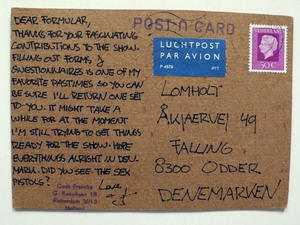 DEAR FORMULAR,
THANKS FOR YOUR FASCINATING
CONTRIBUTIONS TO THE SHOW.
FILLING OUT FORMS, &
QUESTIONNAIRES IS ONE OF MY
FAVORITE PASTIMES SO YOU CAN
BE SURE I'LL RETURN ONE SET
TO YOU. IT MIGHT TAKE A
WHILE FOR AT THE MOMENT
I'M STILL TRYING TO GET THINGS
READY FOR THE SHOW. HOPE
EVERYTHINGS ALRIGHT IN DEN-
MARK. DID YOU SEE THE SEX
PISTOLS?
Love
Rotterdam 3013
Holland
POST-CARD
LUCHTPOST
PAR AVION
P 4579 PTT
NEDERLAND
50C
LOMHOLT
ÅKJAERVEJ 49
FALLING
8300 ODDER
DENEMARKEN